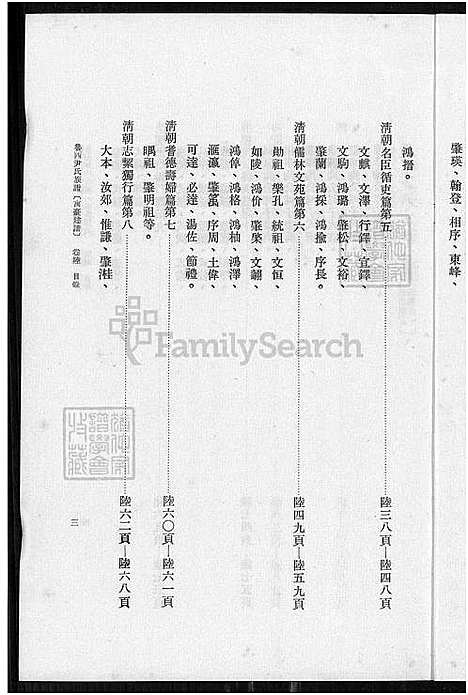 肇瑛、翰登、相序、東峰、
鴻搢。
清朝名臣循吏篇第五……陸三八頁—陸四八頁
文麒、文澤、行鐸、宜鐸
文駒、鴻璐、肇松、文裕、
肇蘭、鴻採、鴻掄、序長。
清朝儒林文苑篇第六……陸四九頁—陸五九頁
勛祖、樂孔、統祖、文恒、
如陵、鴻价、肇榮、文翮、
鴻倬、鴻格、鴻柚、鴻澤、
滙瀛、肇萬、序周、土偉、
可達、必達、湯佐、節禮。
清朝耆德壽婦篇第七……陸六〇頁—陸六一頁
嵎祖、肇明祖等。
清朝志絜獨行篇第八……陸六二頁—陸六八頁
大本、汝郊、惟謙、肇桂、
尹氏族譜 卷陸 目錄 三
FamilySearch